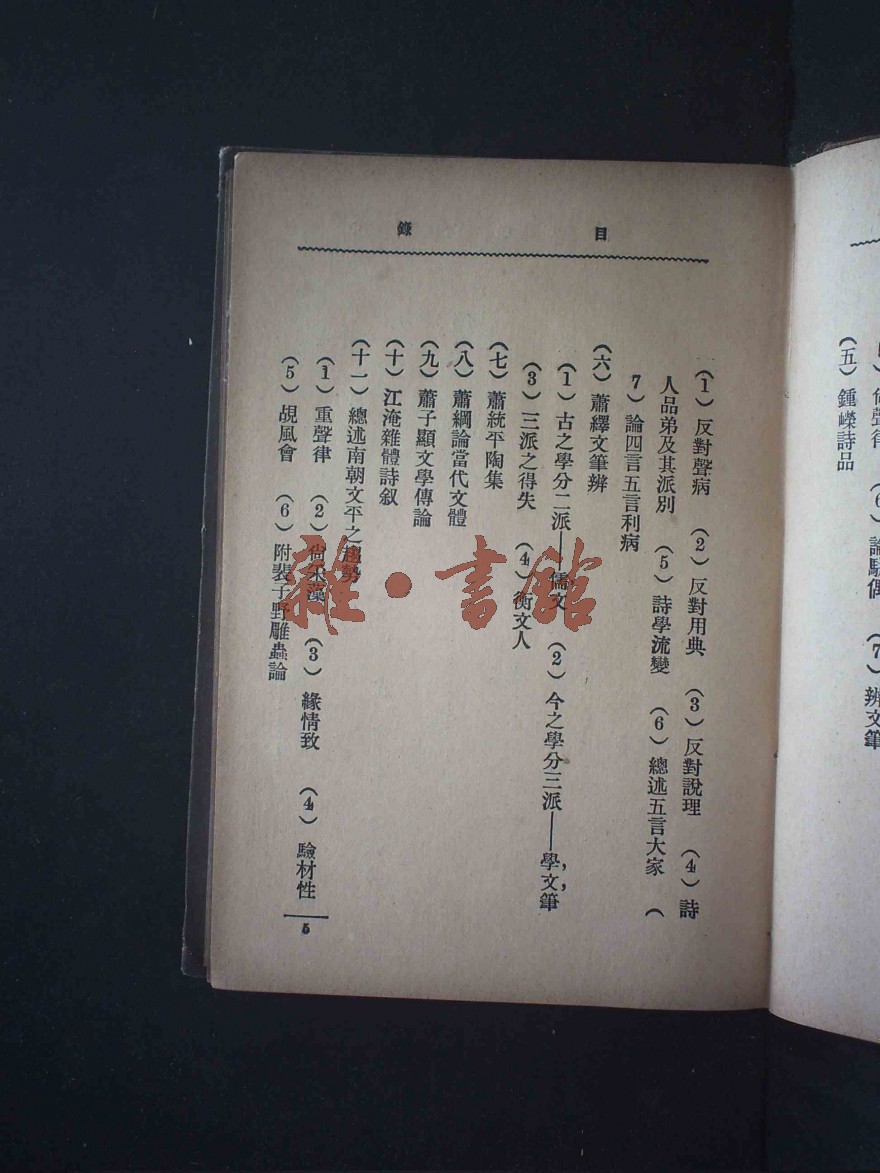 (5) 尙聲律 (6) 論駢偶 (7) 辨文筆
(五) 鍾嶸詩品
目錄
(1) 反對聲病 (2) 反對用典 (3) 反對說理 (4) 詩
人品弟及其派別 (5) 詩學流變 (6) 總述五言大家 (
7) 論四言五言利病
(六) 蕭繹文筆辨
(1) 古之學分二派——儒文 (2) 今之學分三派——學,文,筆
(3) 三派之得失 (4) 衡文人
(七) 蕭統平陶集
(八) 蕭綱論當代文體
(九) 蕭子顯文學傳論
(十) 江淹雜體詩叙
(十一) 總述南朝文平之趨勢
(1) 重聲律 (2) 尙采藻 (3) 緣情致 (4) 驗材性
(5) 覘風會 (6) 附裴子野雕蟲論
5
雜·書館